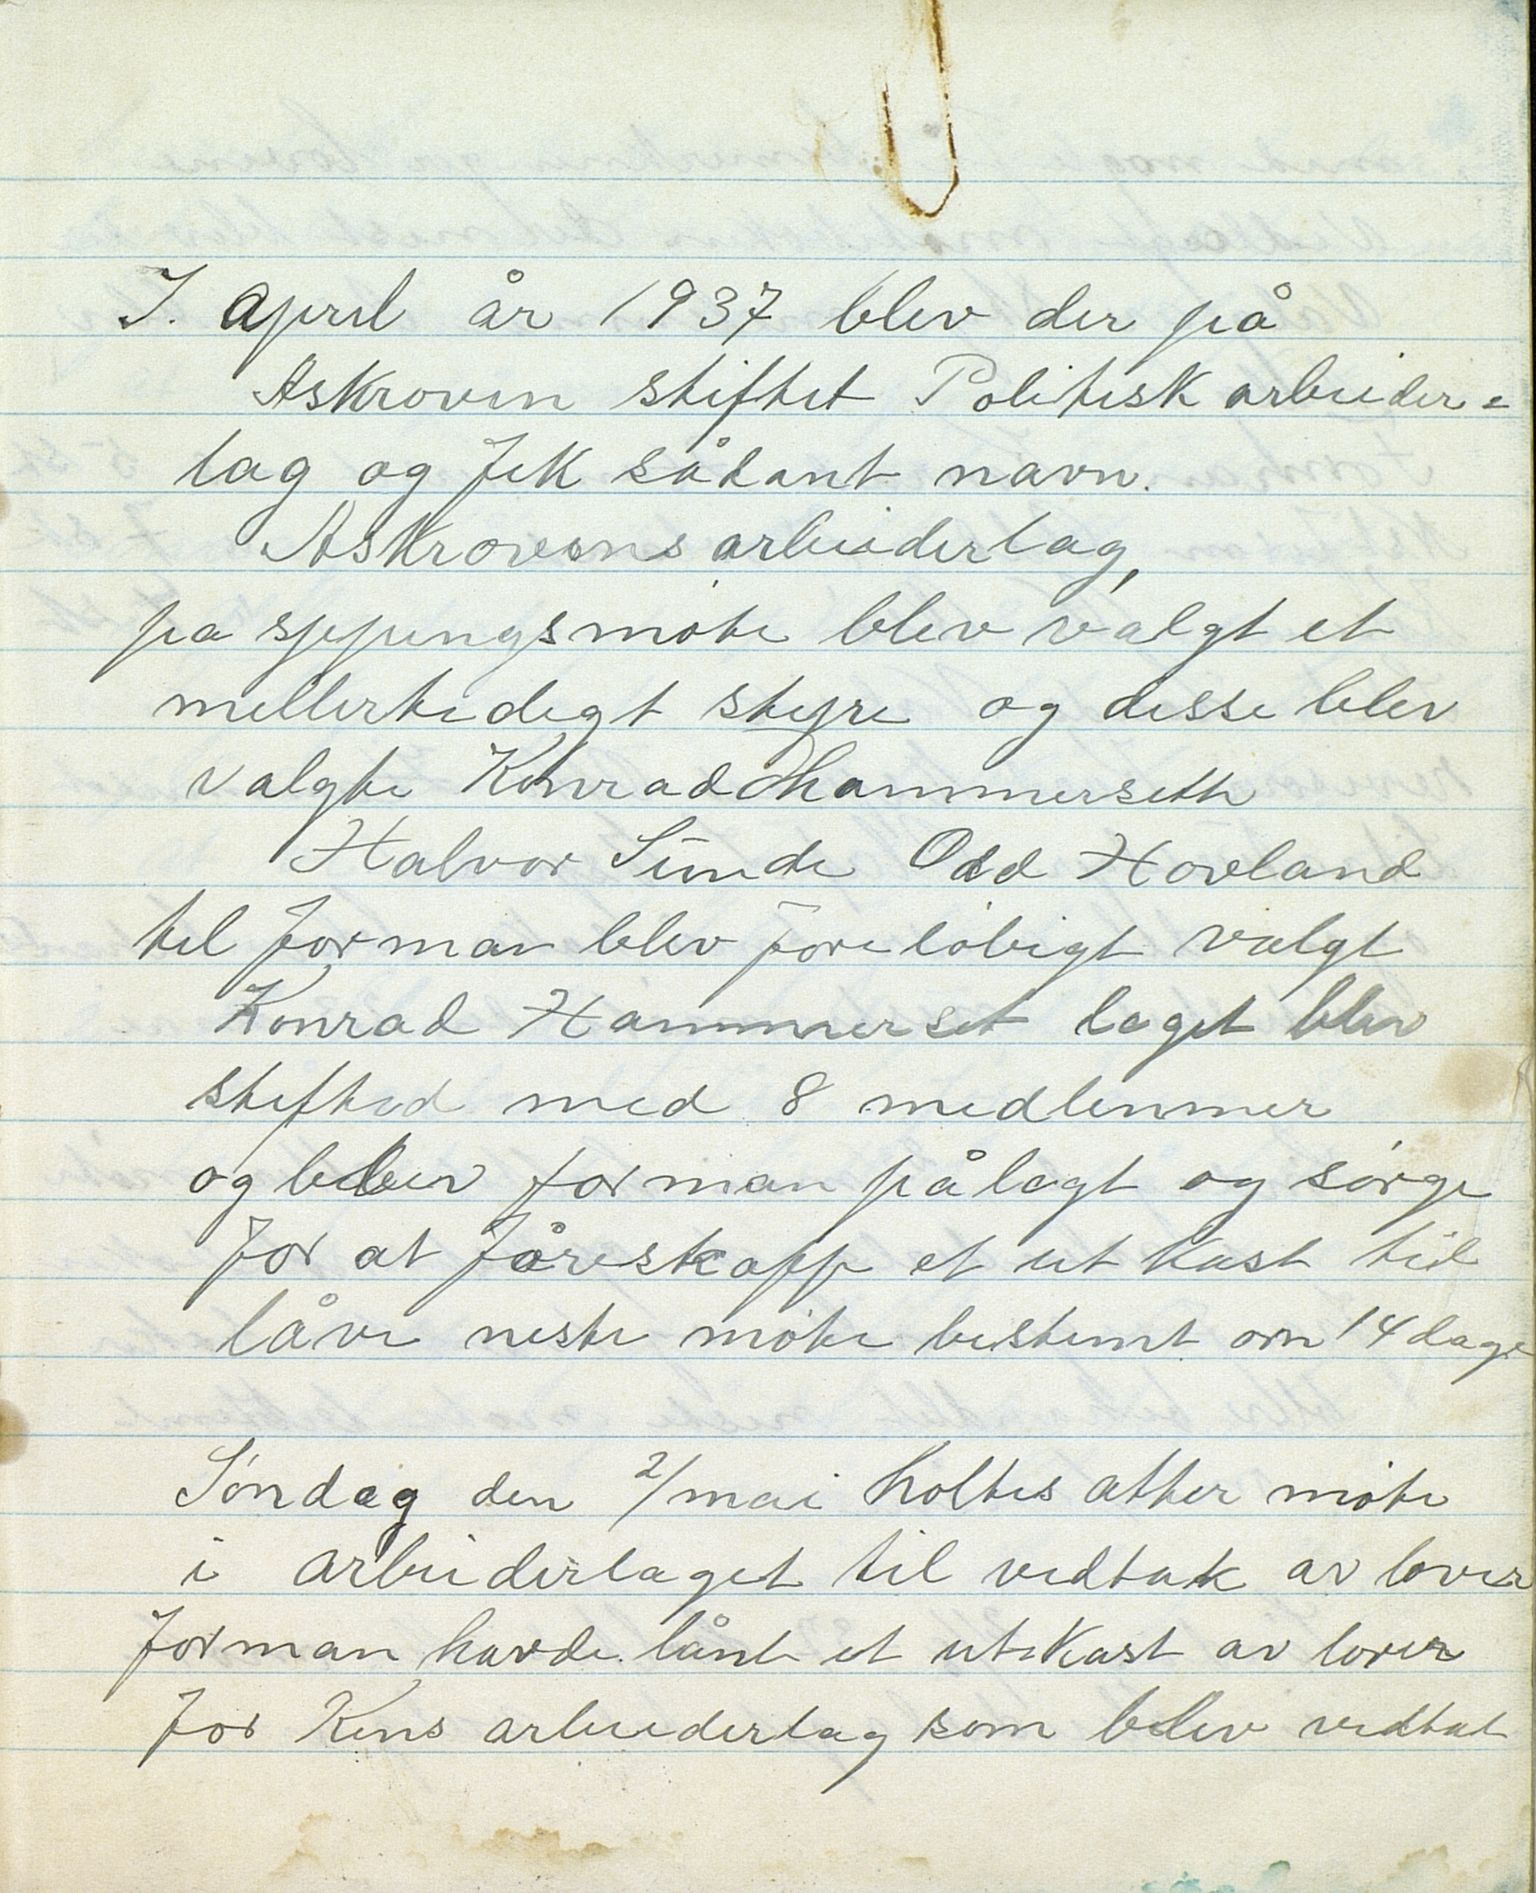 I. april år 1937 blev der på
Askroven stiftet Politisk arbeider=
lag og fik sådant navn.
Askrovens arbeiderlag,
på møte blev valgt et
mellertidigt styre og disse blev
valgte Konrad Hammerseth
Halvor Sunde Odd Hovland
til forman blev foreløbigt valgt
Konrad Hammerset laget blev
stifted med 8 medlemmer
og blev forman pålagt og sørge
for at føreskapp et utkast til
låve neste møte bestemt om 14 dage
Søndag den 2/mai holtes atter møte
i arbeiderlaget til vedtak av lover
forman havde lånt et utkast av lover
for Kins arbeiderlag som blev vedtat